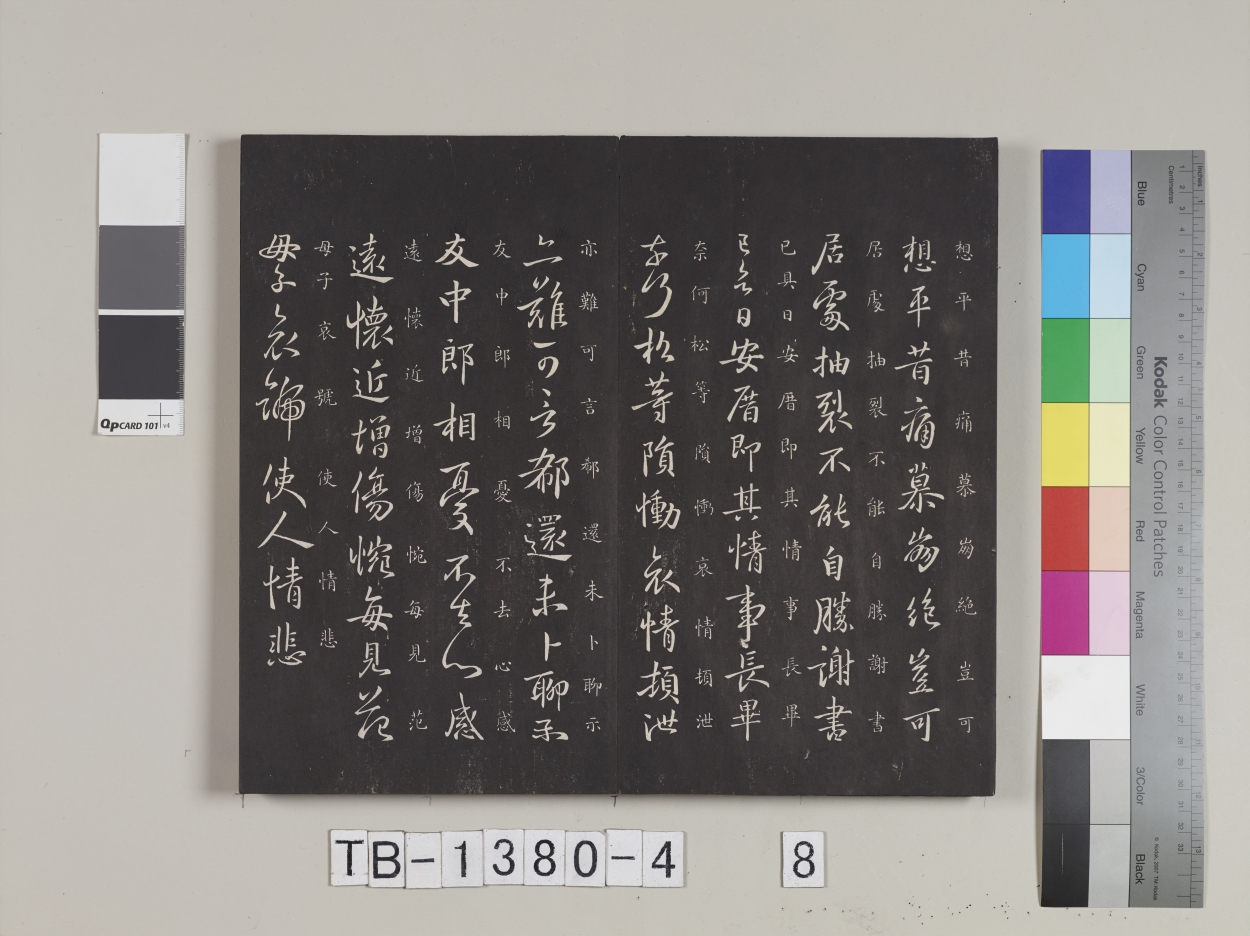 想平昔痛慕崩絶豈可
想平昔痛慕崩絶豈可
居處抽裂不能自勝謝書
居處抽裂不能自勝謝書
已具日安厝即其情事長畢
已具日安厝即其情事長畢
奈何松等隕慟哀情頓泄
奈何松等隕慟哀情頓泄
亦難可言郗還未卜聊示
亦難可言郗還未卜聊示
友中郎相憂不去心感
友中郎相憂不去心感
遠懷近增傷惋每見范
遠懷近增傷惋每見范
母子哀號使人情悲
母子哀號使人情悲
QPCARD 101 v4
TB-1380-4
8
Kodak Color Control Patches
Blue
Cyan
Green
Yellow
Red
Magenta
White
3/Color
Black
Inches
Centimetres